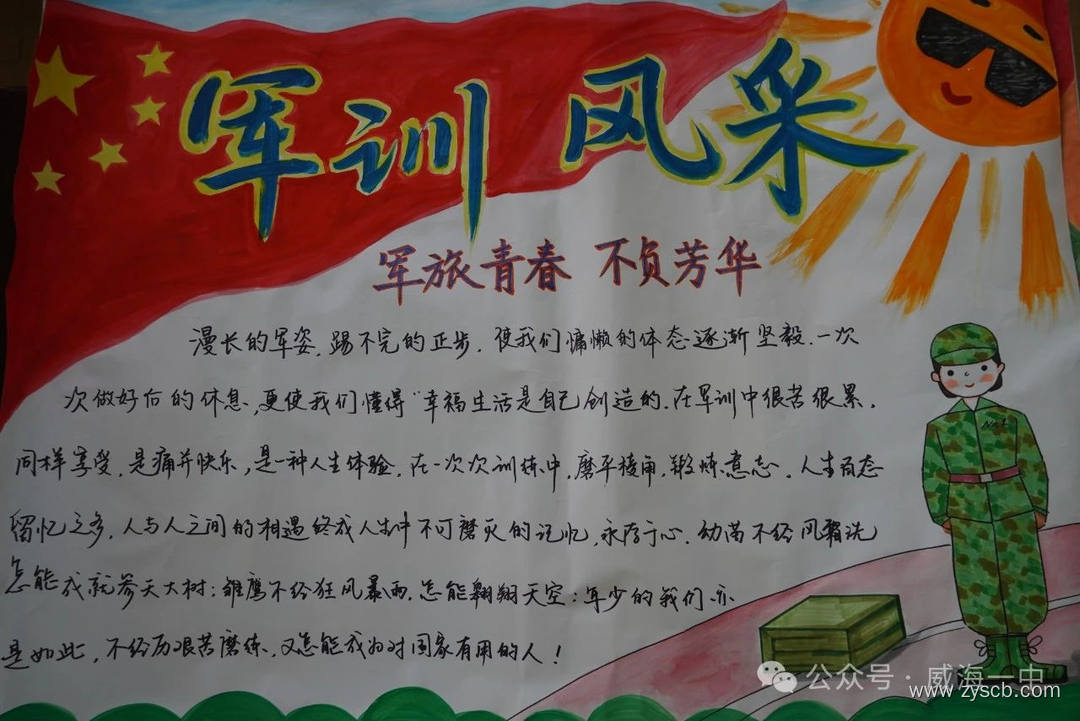 军训风采
军旅青春 不负芳华
漫长的军姿,踢不完的正步,使我们慵懒的体态逐渐坚毅.一次
次做好后的休息,更使我们懂得"幸福生活是自己创造的.在军训中很苦很累,
同样享受,是痛并快乐,是一种人生体验,在一次次训练中,磨平棱角,锻炼意志,人生百态
留忆之多,人与人之间的相遇终成人生中不可磨灭的记忆,永存于心.幼苗不经风霜洗
怎能成就参天大树;雏鹰不经狂风暴雨,怎能翱翔天空;年少的我们亦
是如此,不经历艰苦磨练,又怎能成为对国家有用的人!
公众号·威海一中
www.zyscb.com